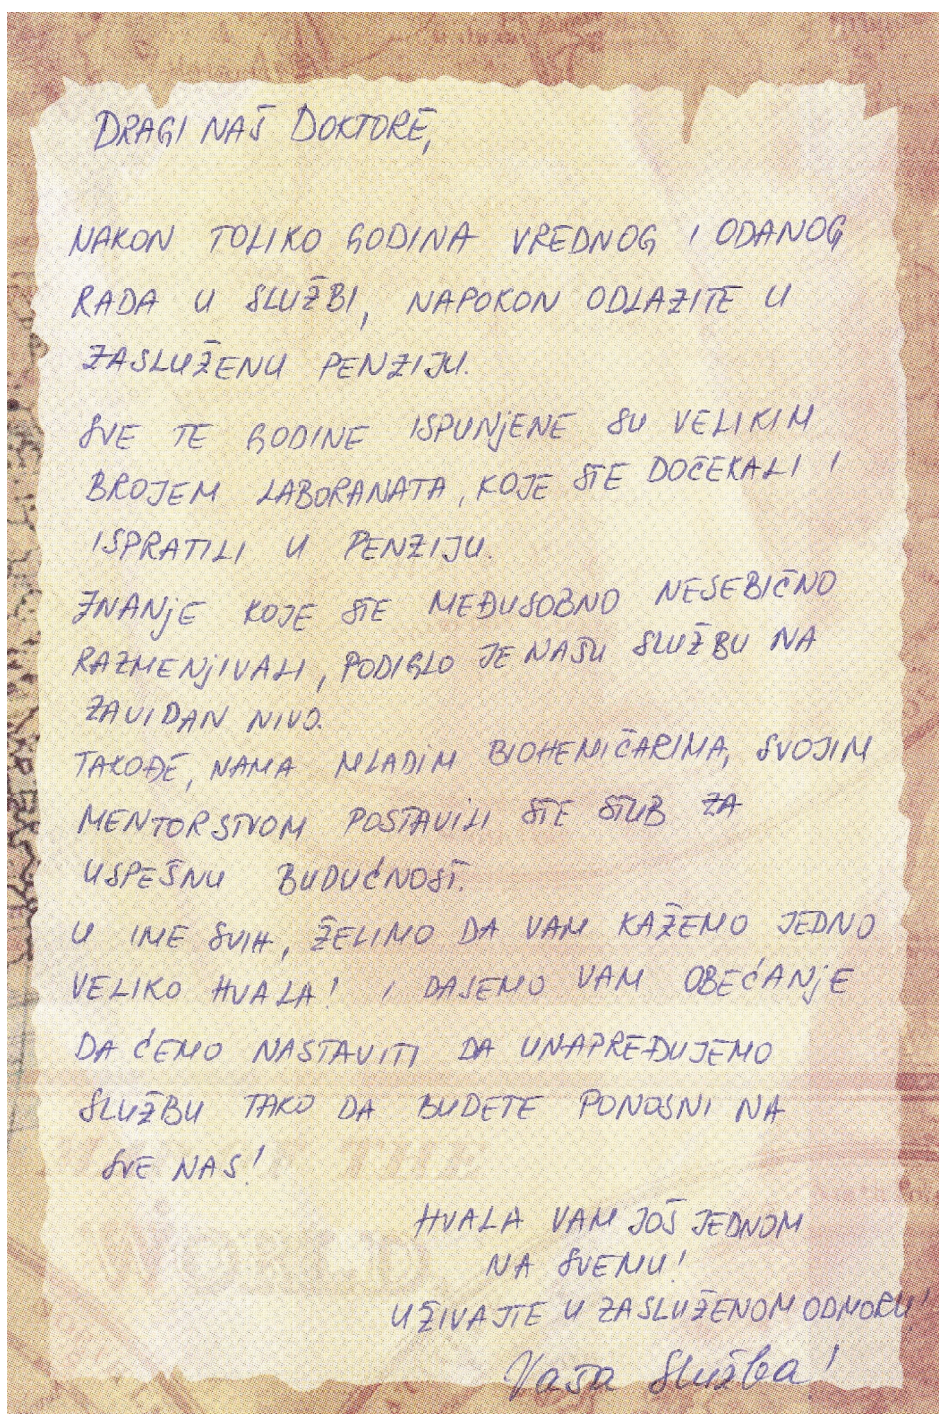 DRAGI NAŠ DOKTORE,
NAKON TOLIKO GODINA VREDNOG I ODANOG
RADA U SLUŽBI, NAPOKON ODLAZITE U
ZASLUŽENU PENZIJU.
SVE TE GODINE ISPUNJENE SU VELIKIM
BROJEM LABORANATA, KOJE STE DOČEKALI I
ISPRATILI U PENZIJU.
ZNANJE KOJE STE MEĐUSOBNO NESEBIČNO
RAZMENJIVALI, PODIGLO JE NAŠU SLUŽBU NA
ZAVIDAN NIVO.
TAKOĐE, NAMA MLADIM BIOHEMIČARIMA, SVOJIM
MENTORSTVOM POSTAVILI STE STUB ZA
USPEŠNU BUDUĆNOST.
U IME SVIH, ŽELIMO DA VAM KAŽEMO JEDNO
VELIKO HVALA! I DAJEMO VAM OBEĆANJE
DA ĆEMO NASTAVITI DA UNAPREĐUJEMO
SLUŽBU TAKO DA BUDETE PONOSNI NA
SVE NAS!
OF THE
WORLD
HVALA VAM JOŠ JEDNOM
NA SVEMU!
UŽIVAJTE U ZASLUŽENOM ODMORU!
Vaša Služba!